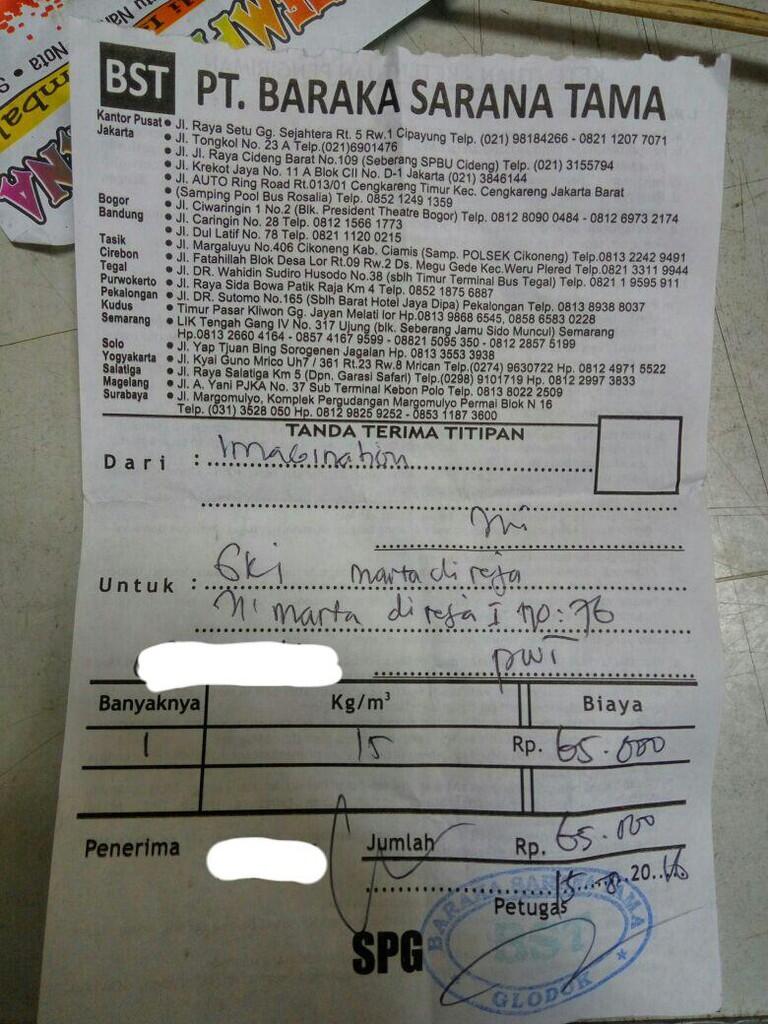 BST PT. BARAKA SARANA TAMA
Kantor Pusat • Jl. Raya Setu Gg. Sejahtera Rt. 5 Rw.1 Cipayung Telp. (021) 98184266 - 0821 1207 7071
Jakarta • Jl. Tongkol No. 23 A Telp.(021)6901476
• Jl. Jl. Raya Cideng Barat No.109 (Seberang SPBU Cideng) Telp. (021) 3155794
• Jl. Krekot Jaya No. 11 A Blok CII No. D-1 Jakarta (021) 3846144
• Jl. AUTO Ring Road Rt.013/01 Cengkareng Timur Kec. Cengkareng Jakarta Barat
(Samping Pool Bus Rosalia) Telp. 0852 1249 1359
Bogor • Jl. Ciwaringin 1 No.2 (Blk. President Theatre Bogor) Telp. 0812 8090 0484 - 0812 6973 2174
Bandung • Jl. Caringin No. 28 Telp. 0812 1566 1773
• Jl. Dul Latif No. 78 Telp. 0821 1120 0215
Tasik • Jl. Margaluyu No.406 Cikoneng Kab. Ciamis (Samp. POLSEK Cikoneng) Telp.0813 2242 9491
Cirebon • Jl. Fatahillah Blok Desa Lor Rt.09 Rw.2 Ds. Megu Gede Kec.Weru Plered Telp.0821 3311 9944
Tegal • Jl. DR. Wahidin Sudiro Husodo No.38 (sblh Timur Terminal Bus Tegal) Telp. 0821 1 9595 911
Purwokerto • Jl. Raya Sida Bowa Patik Raja Km 4 Telp. 0852 1875 6887
Pekalongan • Jl. DR. Sutomo No.165 (Sblh Barat Hotel Jaya Dipa) Pekalongan Telp. 0813 8938 8037
Kudus • Timur Pasar Kliwon Gg. Jayan Melati lor Hp.0813 9868 6545, 0858 6583 0228
Semarang • LIK Tengah Gang IV No. 317 Ujung (blk. Seberang Jamu Sido Muncul) Semarang
Hp.0813 2660 4164 - 0857 4167 9599 - 08821 5095 350 - 0812 2857 5199
Solo • Jl. Yap Tjuan Bing Sorogenen Jagalan Hp. 0813 3553 3938
Yogyakarta • Jl. Kyai Guno Mrico Uh7 / 361 Rt.23 Rw.8 Mrican Telp.(0274) 9630722 Hp. 0812 4971 5522
Salatiga • Jl. Raya Salatiga Km 5 (Dpn. Garasi Safari) Telp.(0298) 9101719 Hp. 0812 2997 3833
Magelang • Jl. A. Yani PJKA No. 37 Sub Terminal Kebon Polo Telp. 0813 8022 2509
Surabaya • Jl. Margomulyo, Komplek Pergudangan Margomulyo Permai Blok N 16
Telp. (031) 3528 050 Hp. 0812 9825 9252 - 0853 1187 3600
TANDA TERIMA TITIPAN
Dari : Imagination
Untuk : Gki marta di reja
marta di reja I no: 76
pwt
Banyaknya Kg/m³ Biaya
1 15 Rp. 65.000
Penerima Jumlah Rp. 65.000
15-8-2016
Petugas
SPG
BARAKA SARANA TAMA
BST
GLODOK